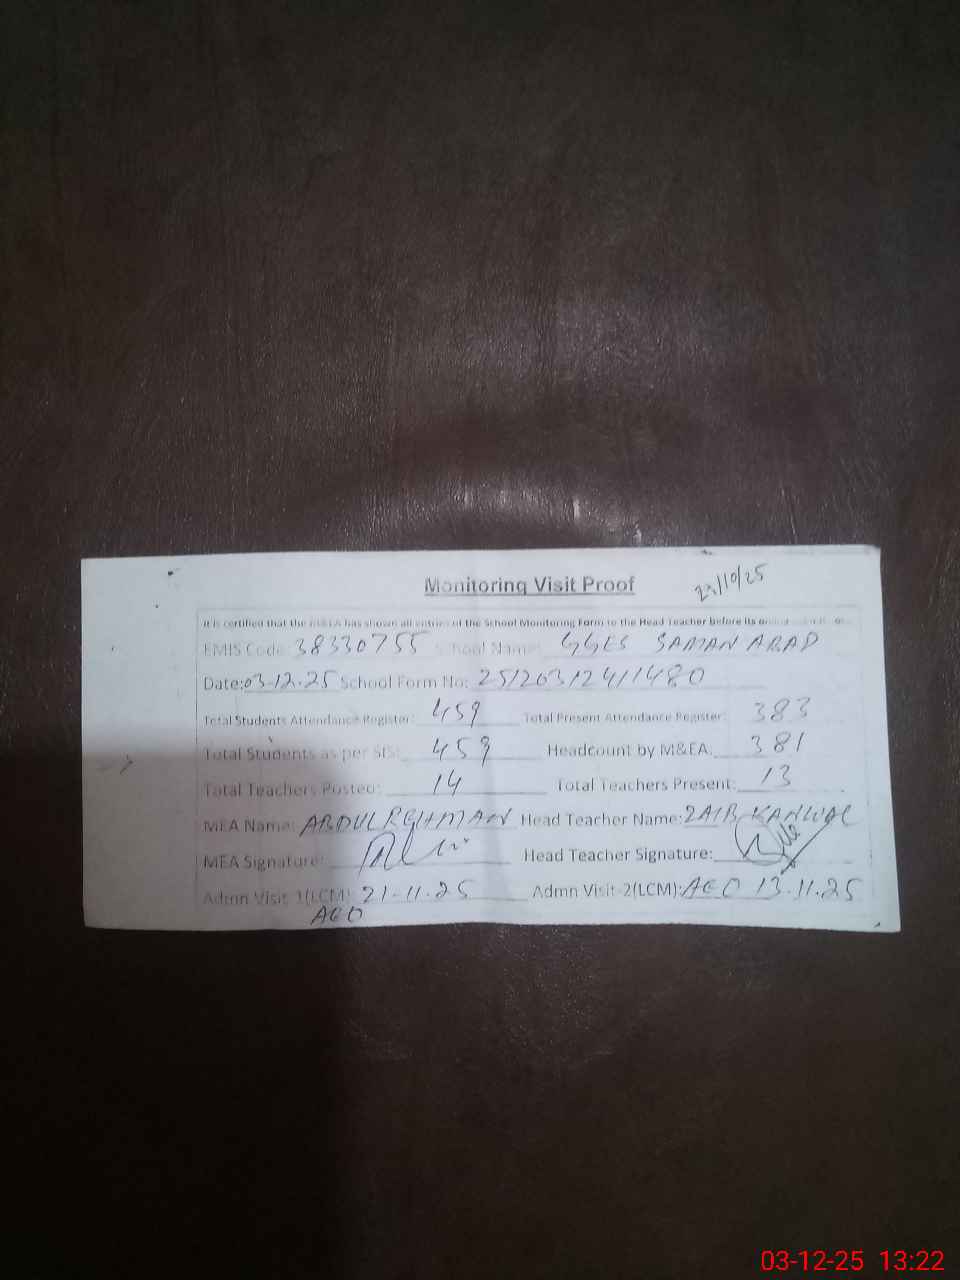 Monitoring Visit Proof
23/10/25
It is certified that the M&EA has shown all entries of the School Monitoring Form to the Head Teacher before its
EMIS Code: 38330755 School Name: GGES SAMANABAD
Date: 03-12-25 School Form No: 25120312411480
Total Students Attendance Register: 459 Total Present Attendance Register: 383
Total Students as per SIS: 459 Headcount by M&EA: 381
Total Teachers Posted: 14 Total Teachers Present: 13
MEA Name: ABDUL REHMAN Head Teacher Name: ZAIB KANWAL
MEA Signature: Head Teacher Signature:
Admn Visit-1(LCM): 21-11-25 Admn Visit-2(LCM): AEO 13-11-25
AEO
03-12-25 13:22